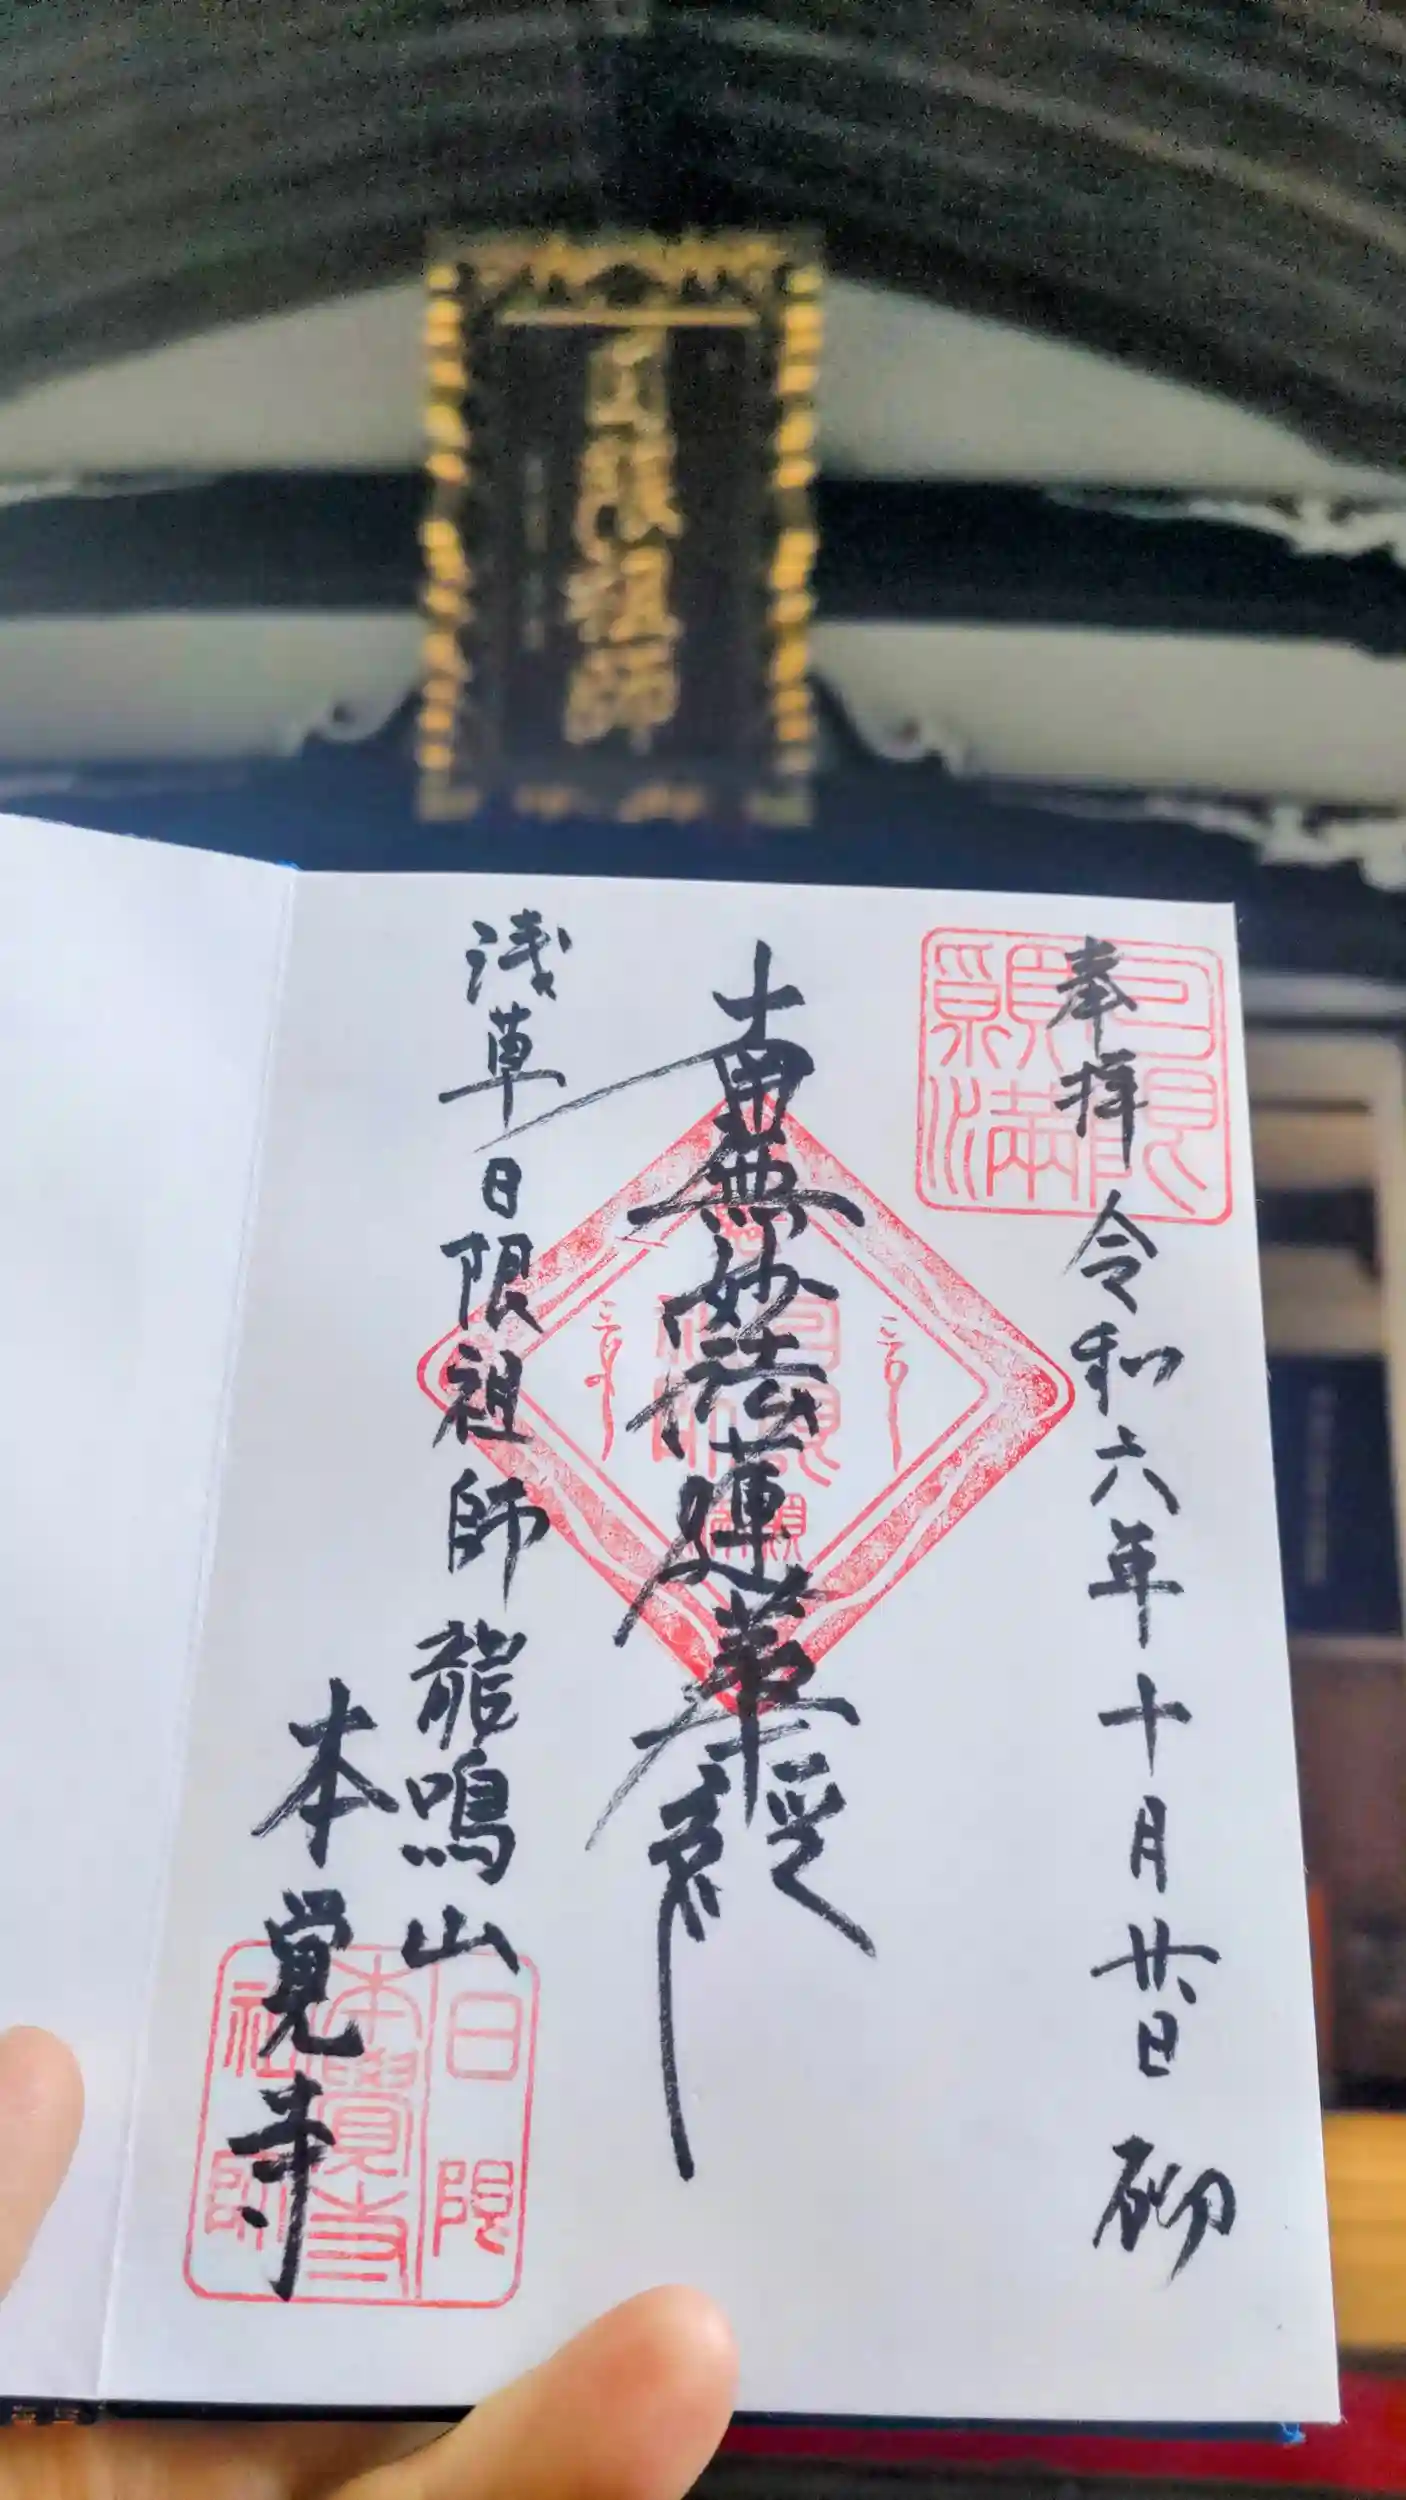 日限祖師
奉拝 令和六年十月廿日
南無妙法蓮華経
浅草日限祖師 龍鳴山
本覚寺
日限
願満
日限
本覺寺
祖師